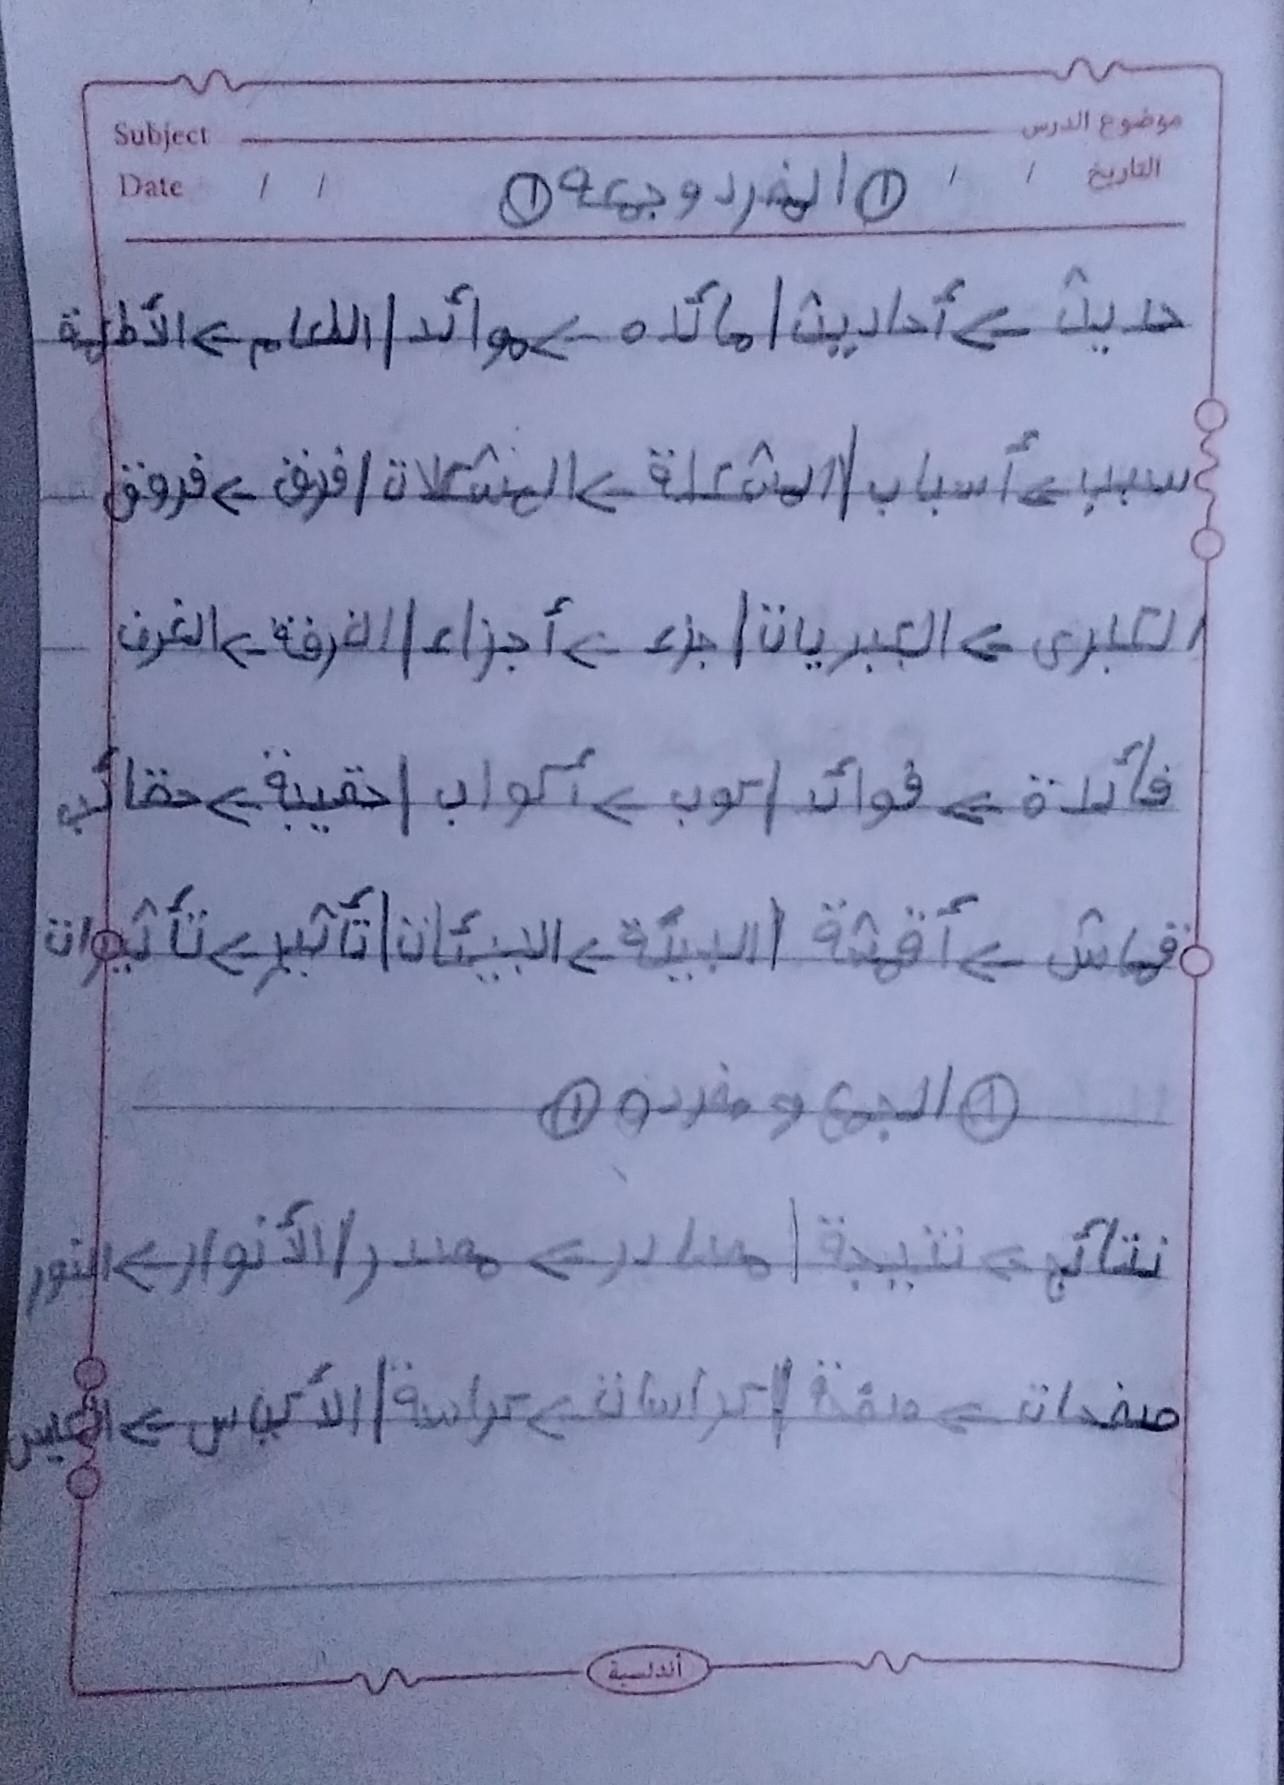 Subject موضوع الدرس
Date / / / / التاريخ
① المفرد وجمعه ①
حديث > أحاديث / مائده > موائد / الطعام > الأطعمة
سبب > أسباب / المشكلة > المشكلات / فرق > فروق
الكبرى > الكبريات / جزء > أجزاء / الغرفة > الغرف
فائدة > فوائد / كوب > أكواب / حقيبة > حقائب
قماش > أقمشة / البيئة > البيئات / تأثير > تأثيرات
① الجمع ومفرده ①
نتائج > نتيجة / مصادر > مصدر / الأنوار > النور
صفحات > صفحة / كراسات > كراسة / الأكياس > الكيس
أندلسية